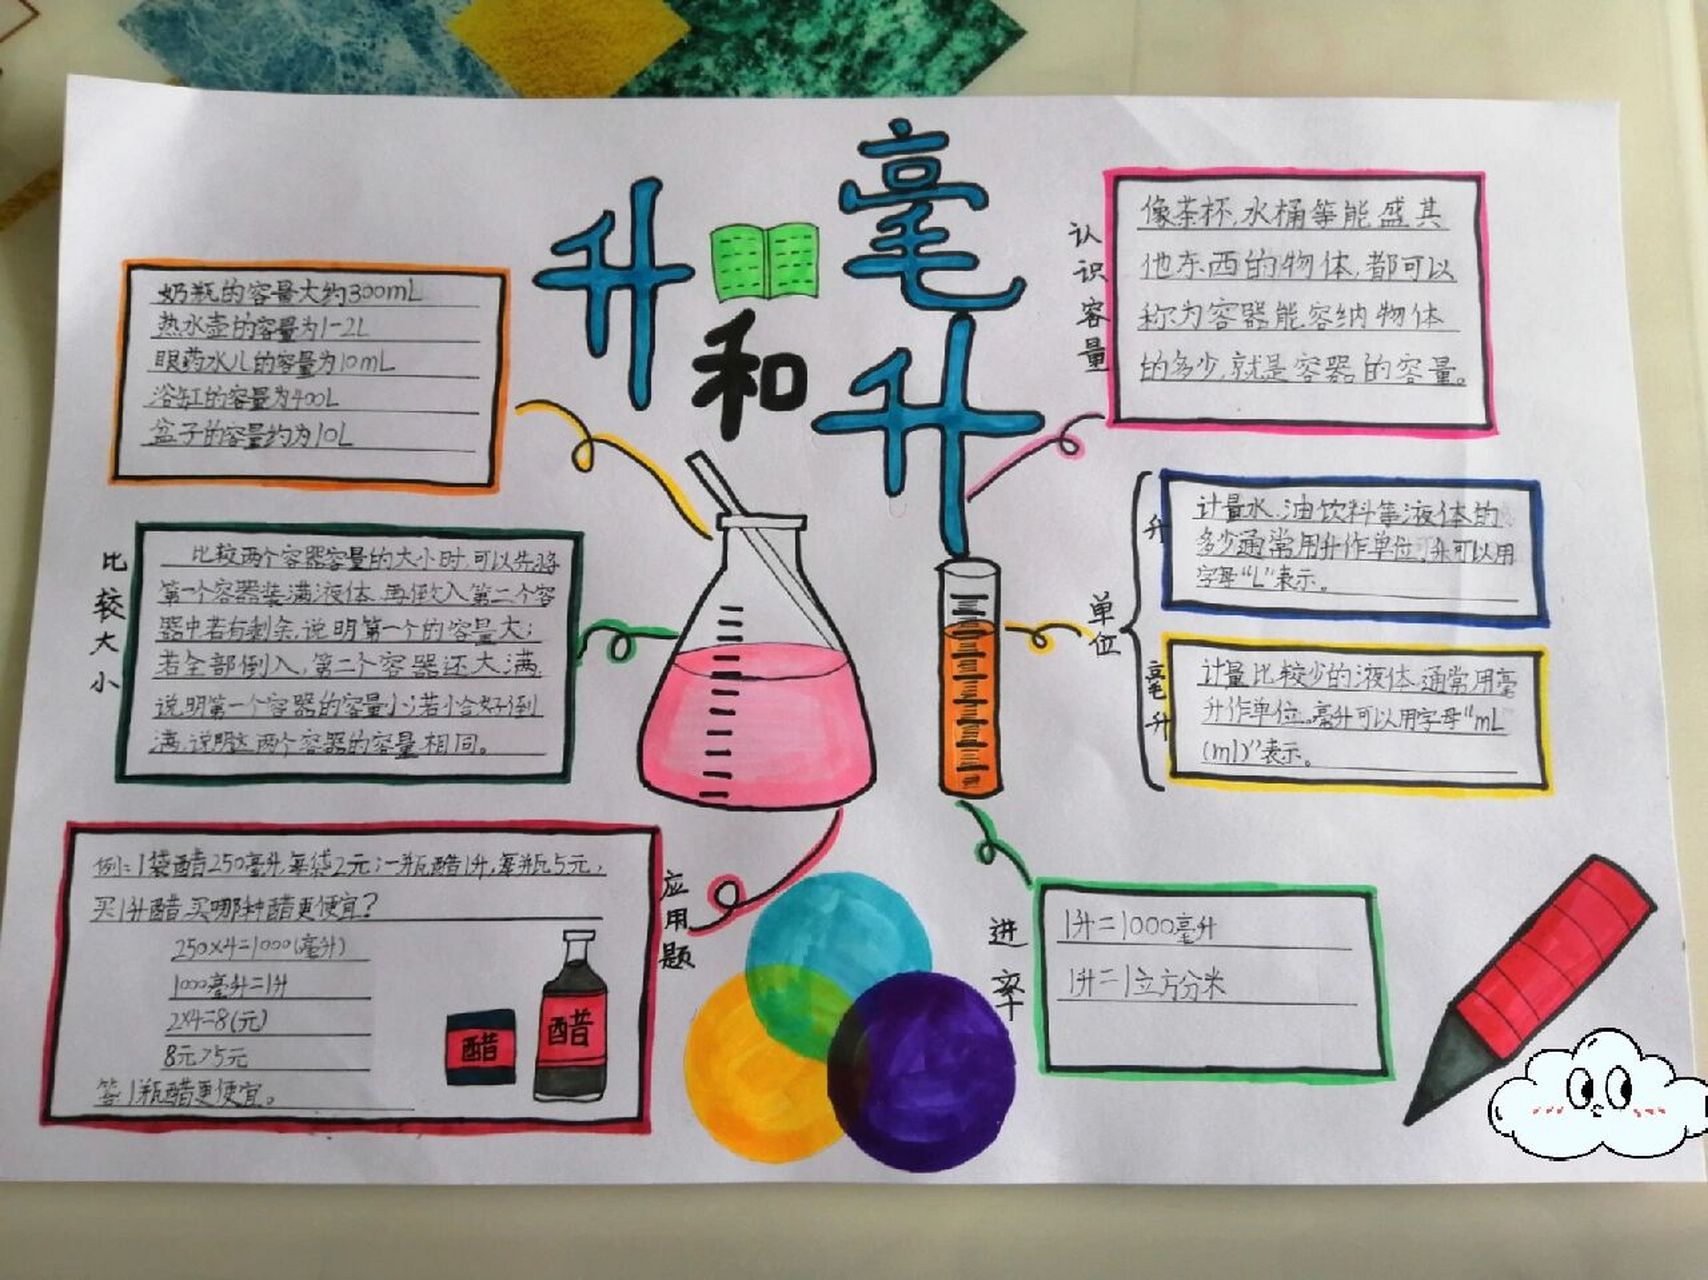 升
和
毫
升
奶瓶的容量大约300mL
热水壶的容量为1-2L
眼药水儿的容量为10mL
浴缸的容量为400L
盆子的容量约为10L
认识容量
像茶杯,水桶等能盛其
他东西的物体,都可以
称为容器能容纳物体
的多少,就是容器的容量。
比较大小
比较两个容器容量的大小时,可以先将
第一个容器装满液体,再倒入第二个容
器中若有剩余,说明第一个的容量大;
若全部倒入,第二个容器还大满,
说明第一个容器的容量小;若恰好倒
满,说明这两个容器的容量相同。
单位
升
计量水、油饮料等液体的
多少通常用升作单位,升可以用
字母“L”表示。
毫升
计量比较少的液体,通常用毫
升作单位。毫升可以用字母“mL
(ml)”表示。
应用题
例:1袋醋250毫升,每袋2元;一瓶醋1升,每瓶5元,
买1升醋,买哪种醋更便宜?
250×4=1000(毫升)
1000毫升=1升
2×4=8(元)
8元>5元
答:1瓶醋更便宜。
醋
醋
进率
1升=1000毫升
1升=1立方分米